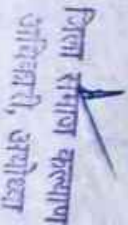 जिला समाज कल्याण
अधिकारी, अयोध्या